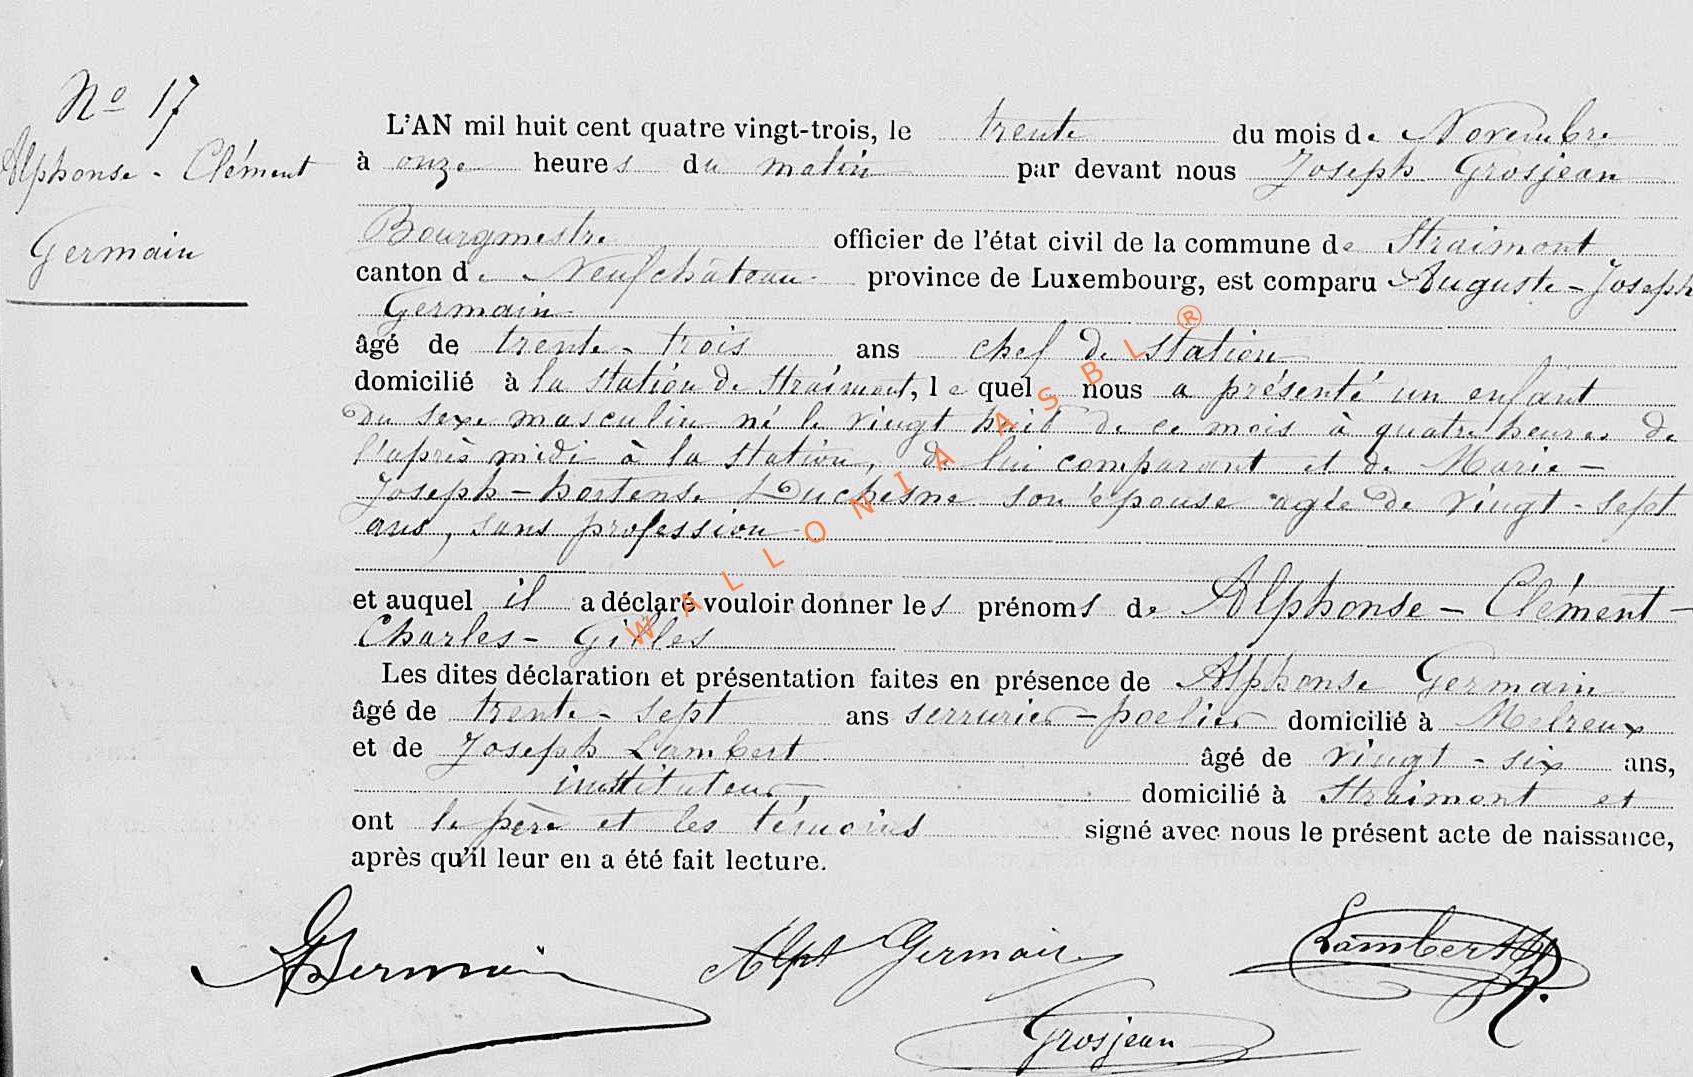 No 17
Alphonse - Clément
Germain
L'AN mil huit cent quatre vingt-trois, le trente du mois de Novembre
à onze heures du matin par devant nous Joseph Grosjean
Bourgmestre officier de l'état civil de la commune de Straimont
canton de Neufchâteau province de Luxembourg, est comparu Auguste-Joseph
Germain
âgé de trente-trois ans chef de station
domicilié à la station de Straimont, lequel nous a présenté un enfant
du sexe masculin né le vingt huit de ce mois à quatre heures de
l'après midi à la station, de lui comparant et de Marie-
Joseph-hortense Duchesne son épouse agée de vingt-sept
ans, sans profession
et auquel il a déclaré vouloir donner les prénoms de Alphonse - Clément -
Charles - Gilles
Les dites déclaration et présentation faites en présence de Alphonse Germain
âgé de trente-sept ans serrurier-poelier domicilié à Melreux
et de Joseph Lambert âgé de vingt-six ans,
instituteur, domicilié à Straimont et
ont le père et les témoins signé avec nous le présent acte de naissance,
après qu'il leur en a été fait lecture.
AGermain
Alpht Germain
Lambert Jh.
Grosjean
WALLONIA ASBL ®